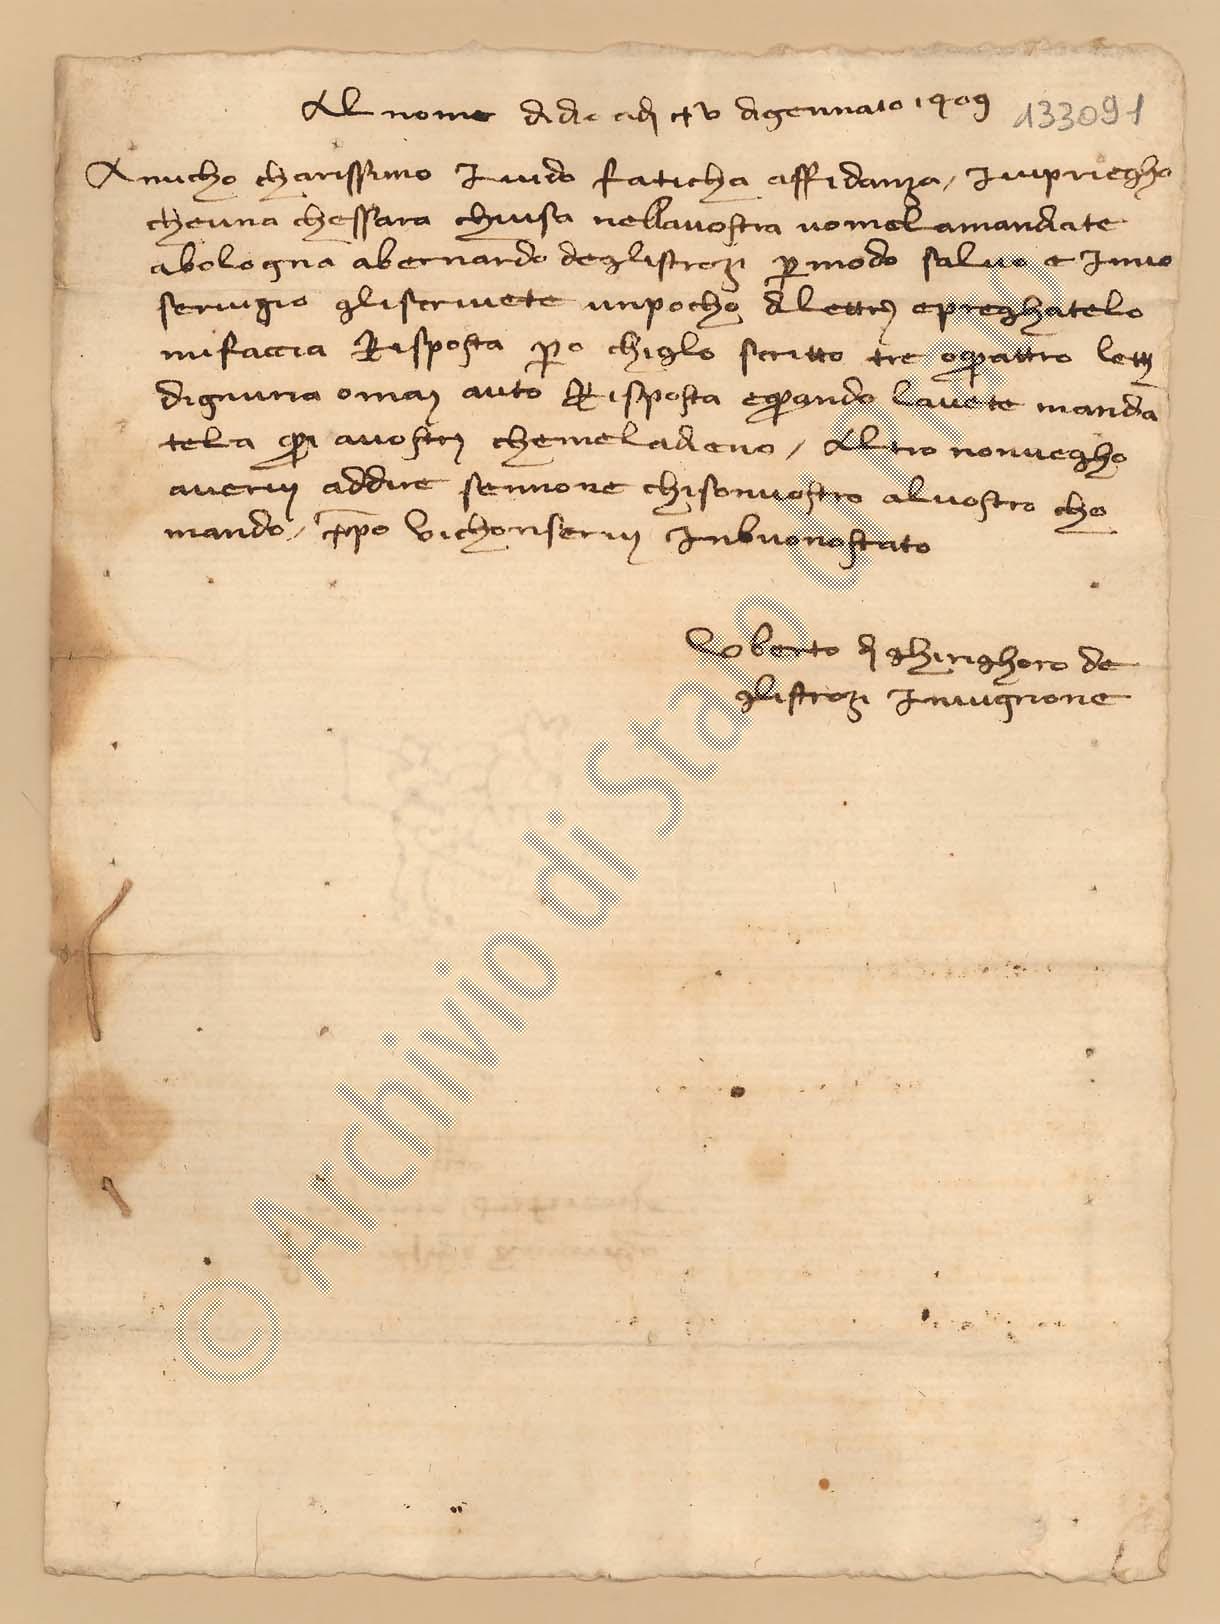 Al nome di dio adi xv di gennaio 1409 133091
Amicho charissimo Ivido faticha affidanza / Ivi priegho
che una chessara chiusa nella vostra voi me la mandiate
a bologna a bernardo deglistrozi p modo salvo e in mio
servigio gliscrivete un pocho di lettera e preghatelo
mi faccia Risposta po chiglo scritto tre o quattro lett
di gnuna o mai auto Risposta e quando lavete manda
tela qui a vostri che me la dieno / Altro non vegho
avervi addire se nnone chi son vostro al vostro cho
mando / xpo vi chonservi in buono stato
Uberto di ghirighoro de
glistrozi in mugnone
© Archivio di Stato di